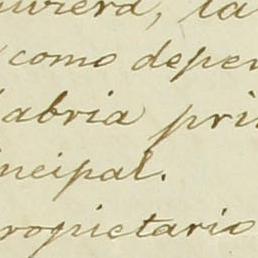 uviera, la
como depen
abria pri
ncipal.
ropietario